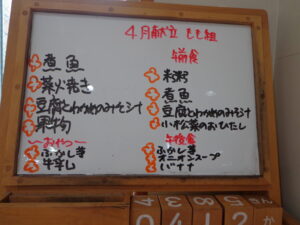 4月献立 もも組
煮魚
菜火焼き
豆腐とわかめのみそ汁
果物
〜おやつ〜
ふかし芋
牛乳
午前食
米粥
煮魚
豆腐とわかめのみそ汁
小松菜のおひたし
午後食
ふかし芋
オニオンスープ
バナナ
0 4 1 2 か